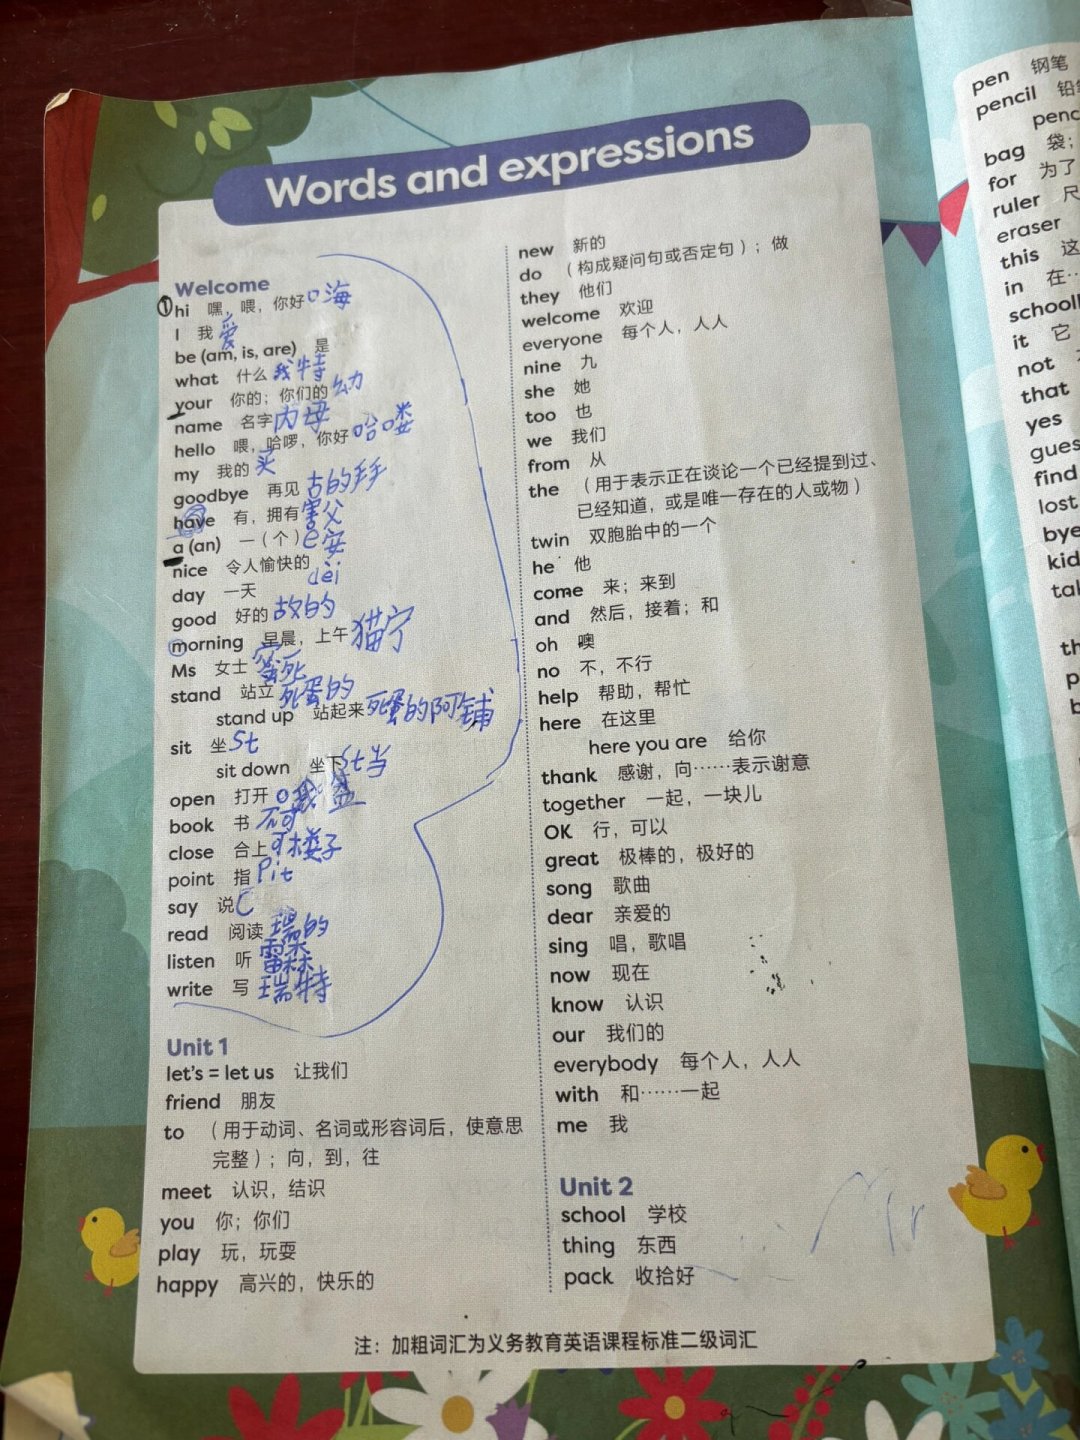 Words and expressions
Welcome
① hi 嘿，喂，你好 口海
I 我 爱
be (am, is, are) 是
what 什么 我特
your 你的；你们的 幼
name 名字 内母
hello 喂，哈啰，你好 哈喽
my 我的 买
goodbye 再见 古的拜
have 有，拥有 害父
a (an) 一（个） e安
nice 令人愉快的
day 一天 dèi
good 好的 故的
morning 早晨，上午 猫宁
Ms 女士
stand 站立 死蛋的
stand up 站起来 死蛋的阿铺
sit 坐 St
sit down 坐下 St当
open 打开
book 书
close 合上 可楼子
point 指 Pit
say 说 C
read 阅读 瑞的
listen 听
write 写 瑞特
Unit 1
let's = let us 让我们
friend 朋友
to （用于动词、名词或形容词后，使意思
完整）；向，到，往
meet 认识，结识
you 你；你们
play 玩，玩耍
happy 高兴的，快乐的
new 新的
do （构成疑问句或否定句）；做
they 他们
welcome 欢迎
everyone 每个人，人人
nine 九
she 她
too 也
we 我们
from 从
the （用于表示正在谈论一个已经提到过、
已经知道，或是唯一存在的人或物）
twin 双胞胎中的一个
he 他
come 来；来到
and 然后，接着；和
oh 噢
no 不，不行
help 帮助，帮忙
here 在这里
here you are 给你
thank 感谢，向……表示谢意
together 一起，一块儿
OK 行，可以
great 极棒的，极好的
song 歌曲
dear 亲爱的
sing 唱，歌唱
now 现在
know 认识
our 我们的
everybody 每个人，人人
with 和……一起
me 我
Unit 2
school 学校
thing 东西
pack 收拾好
注：加粗词汇为义务教育英语课程标准二级词汇
pen 钢笔
pencil
bag 袋；
for 为了
ruler
eraser
this 这
in 在
it 它
not
that
yes
find
lost